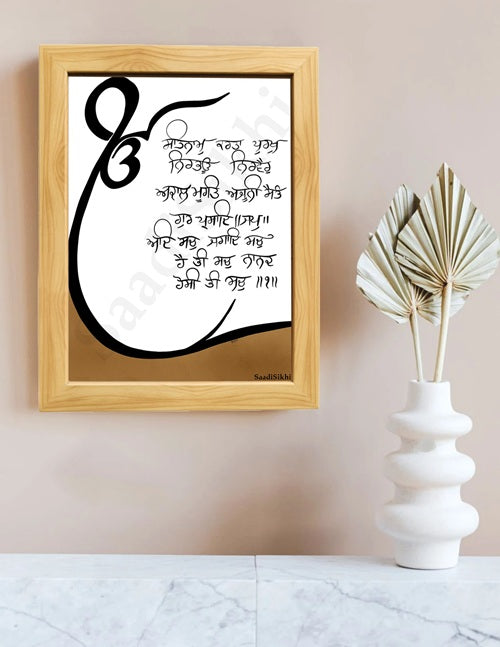 ੴ
ਸਤਿਨਾਮੁ ਕਰਤਾ ਪੁਰਖੁ
ਨਿਰਭਉ ਨਿਰਵੈਰੁ
ਅਕਾਲ ਮੂਰਤਿ ਅਜੂਨੀ ਸੈਭੰ
ਗੁਰ ਪ੍ਰਸਾਦਿ ॥ਜਪੁ॥
ਆਦਿ ਸਚੁ ਜੁਗਾਦਿ ਸਚੁ
ਹੈ ਭੀ ਸਚੁ ਨਾਨਕ
ਹੋਸੀ ਭੀ ਸਚੁ ॥੧॥
SaadiSikhi